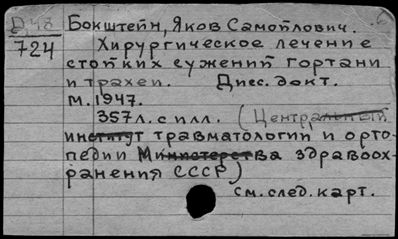 Д48 Бокштейн, Яков Самойлович.
724 Хирургическое лечение
стойких сужений гортани
и трахеи. Дисс. докт.
М. 1947.
357 л. с илл. (Центральный
институт травматологии и орто-
педии Министерства здравоох-
ранения СССР)
см. след. карт.